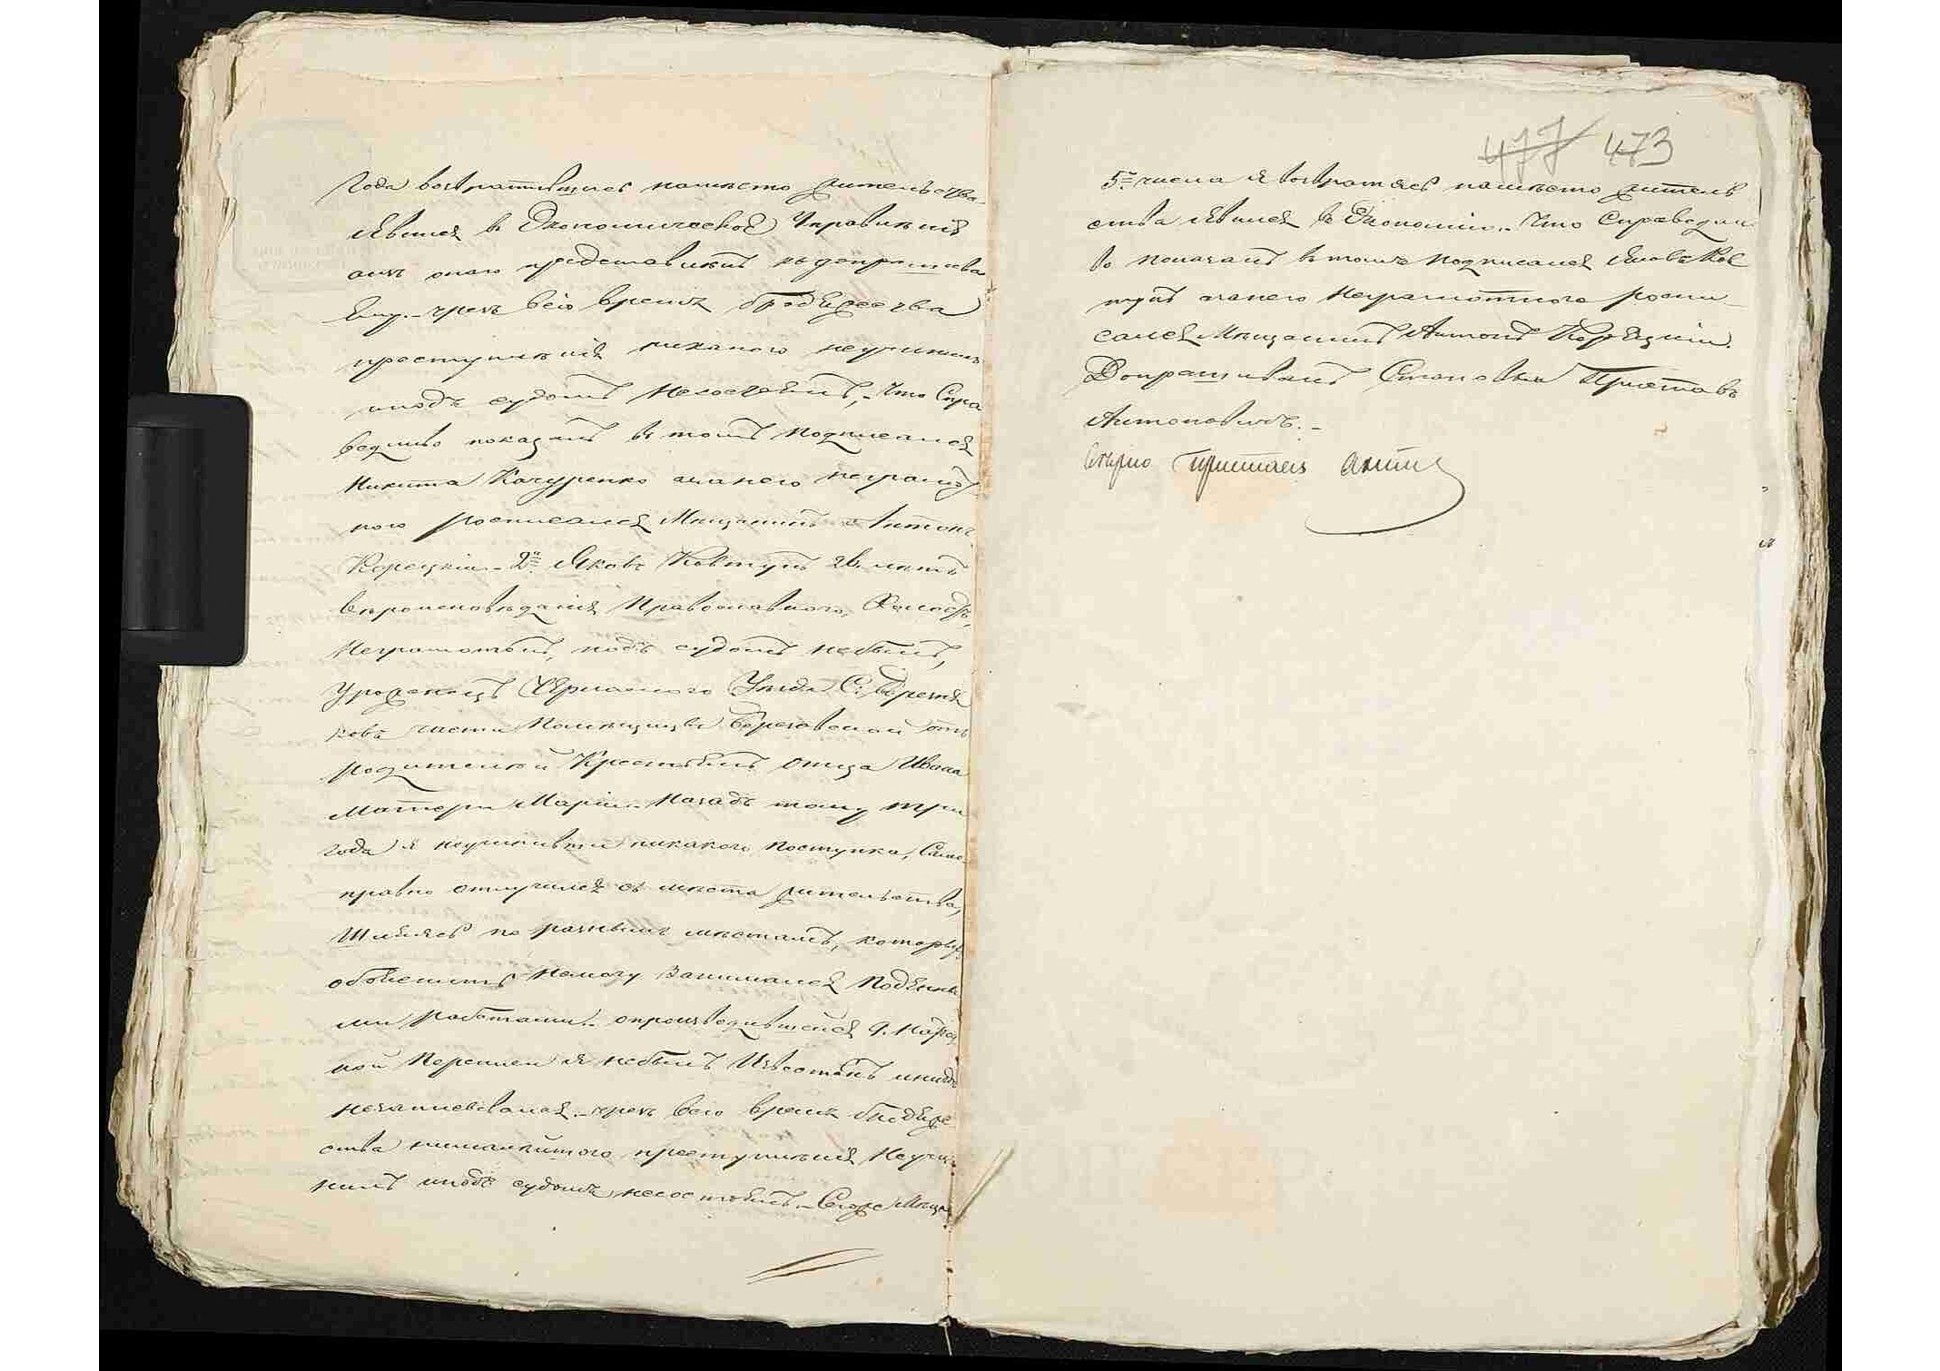 года возвратившись намѣсто жительства
явился в Экономическое Управленіе
а изъ онаго представленъ къ допросу
ему. чрезъ всіо время бродяжества
преступленія никакого неучинилъ
иподъ судомъ несостоялъ, что Спра
ведливо показалъ въ томъ подписался
Никита Качуренко а занего неграмот
ного росписался Мещанинъ Антонъ
Корецкій. 2й Яковъ Ковтунъ 26 лѣтъ
вѣроисповѣданія Православного, Холостъ,
Неграмотенъ, подъ судомъ небылъ,
Урожденецъ Уѣзда С: Березня
ковъ части Помѣщицы Березовской отъ
родителей Крестьянъ отца Ивана
Матери Маріи. Назадъ тому три
года я неучинивши никакого поступка, Само
правно отлучился съ мѣста жительства,
Шляясь по разнымъ мѣстамъ, которыхъ
объяснить немогу занимался Поденны
ми работами. опроизводившейся 9. Народ
ной Переписи я небылъ Извѣстенъ инигдѣ
незаписывался. чрезъ всіо время бродяже
ства никакого преступленія Неучи
нилъ иподъ судомъ несостоялъ. Сегоже Мѣся
477 473
5го числа я возвратясь намѣсто житель
ства явился въ Экономію. Что Справедли
во показалъ въ томъ подписался Яковъ Ков
тунъ а занего Неграмотного роспи
сался Мещанинъ Антонъ Корецкій.
Допрашивалъ Становый Приставъ
Антоновичъ.
Вѣрно Приставъ